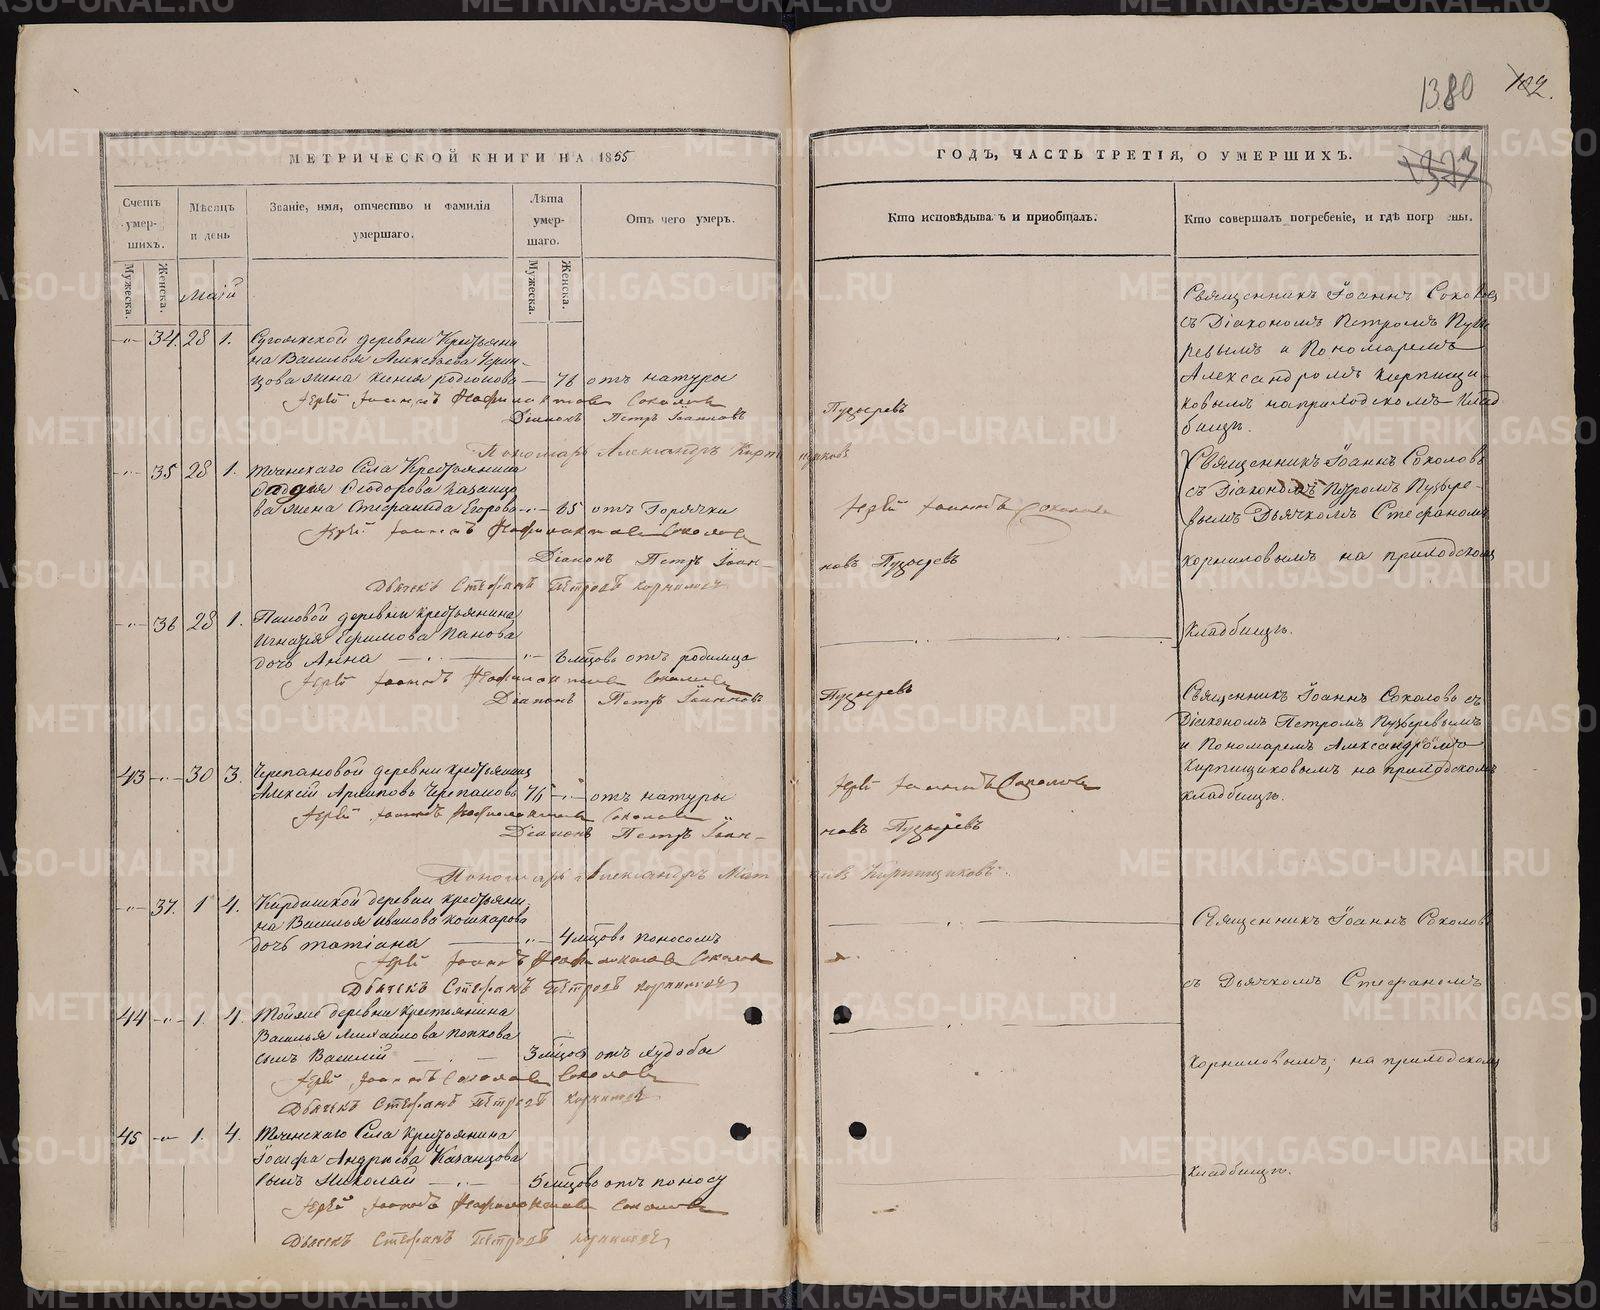 1380
102.
1373
МЕТРИЧЕСКОЙ КНИГИ НА 1855
ГОДЪ, ЧАСТЬ ТРЕТІЯ, О УМЕРШИХЪ.
Счетъ умер-шихъ.
Мужеска.
Женска.
Мѣсяцъ и день
Званіе, имя, отчество и фамилія умершаго.
Лѣта умер-шаго.
Мужеска.
Женска.
Отъ чего умеръ.
Кто исповѣдывалъ и пріобщалъ.
Кто совершалъ погребеніе, и гдѣ погр ены.
Маій
34. 28 1.
деревни Крестьяни
на Василья Алексѣева
жена Ксенія Родіонова — 76 отъ натуры
Іерей Іоаннъ Соколовъ
Діаконъ Петръ Іоанновъ Пузыревъ
Пономарь Александръ
Священникъ Іоаннъ Соколовъ
съ Діакономъ Петромъ Пузы
ревымъ и Пономаремъ
Александромъ Кирпищи
ковымъ на приходскомъ Клад
бищѣ.
35 28 1. Теченскаго Села Крестьянина
Ѳеодорова Казанцо
ва жена Степанида Егорова — 65 отъ Горячки
Іерей Іоаннъ Соколовъ
Діаконъ Петръ Іоан-
новъ Пузыревъ
Дьячекъ Стефанъ Петровъ Корниловъ
Іерей Іоаннъ Соколовъ
Священникъ Іоаннъ Соколовъ
съ Діакономъ Петромъ Пузыре-
вымъ Дьячкомъ Стефаномъ
Корниловымъ на приходскомъ
Кладбищѣ.
36 28 1. Пановой деревни крестьянина
Игнатія Ефимова Панова
дочь Анна — 6 мѣцовъ отъ родимца
Іерей Іоаннъ Соколовъ
Діаконъ Петръ Іоанновъ Пузыревъ
Священникъ Іоаннъ Соколовъ съ
Діакономъ Петромъ Пузыревымъ
и Пономаремъ Александромъ
Кирпищиковымъ на приходскомъ
кладбищѣ.
43 30 3. Черепановой деревни крестьянинъ
Алексій Архиповъ Черепановъ 76 отъ натуры
Іерей Іоаннъ Соколовъ
Діаконъ Петръ Іоан-
новъ Пузыревъ
Іерей Іоаннъ Соколовъ
Пономарь Александръ Кирпищиковъ.
37. 1 4. деревни крестьяни
на Василья Иванова Кошкарова
дочь Татіана — 4 мѣцовъ поносомъ
Іерей Іоаннъ Соколовъ
Дьячекъ Стефанъ Петровъ Корниловъ
Священникъ Іоаннъ Соколовъ
съ Дьячкомъ Стефаномъ
Корниловымъ; на приходскомъ
Кладбищѣ.
44 1. 4. деревни крестьянина
Василья Михайлова Попкова
сынъ Василій 3 мѣцовъ отъ худобы
Іерей Іоаннъ Соколовъ
Дьячекъ Стефанъ Петровъ Корниловъ
45 1. 4. Теченскаго Села крестьянина
Іосифа Андреева Казанцова
сынъ Николай 5 мѣцовъ отъ поносу
Іерей Іоаннъ Соколовъ
Дьячекъ Стефанъ Петровъ Корниловъ
METRIKI.GASO-URAL.RU